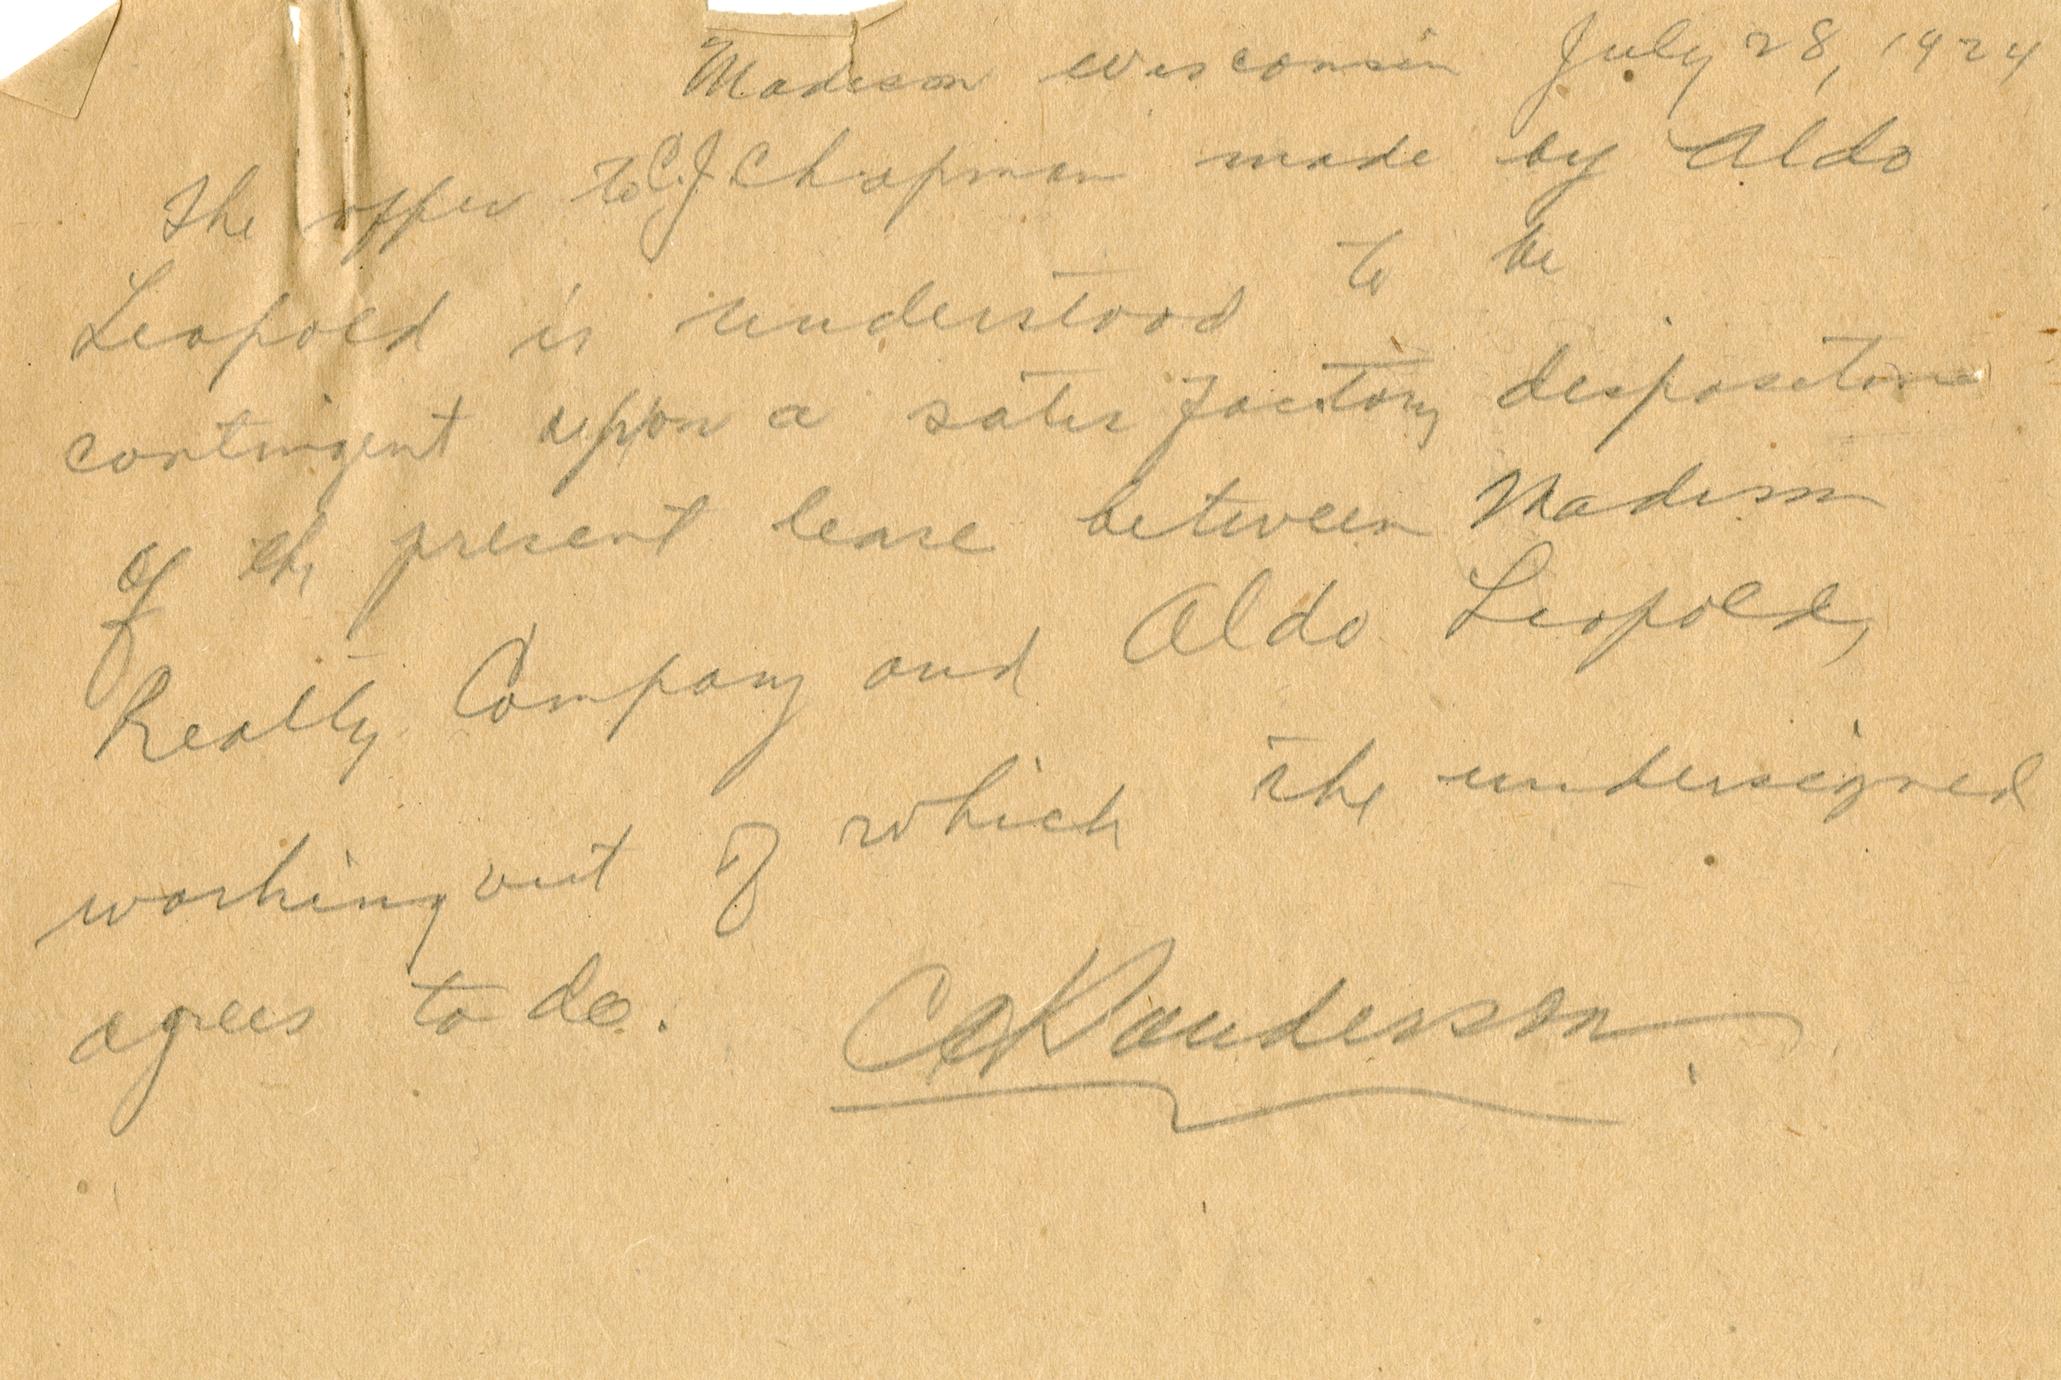 Madison Wisconsin July 28, 1924
The offer to C.J. Chapman made by Aldo
Leopold is understood to be
contingent upon a satisfactory disposition
of the present lease between Madison
Realty Company and Aldo Leopold,
working out of which the undersigned
agrees to do.